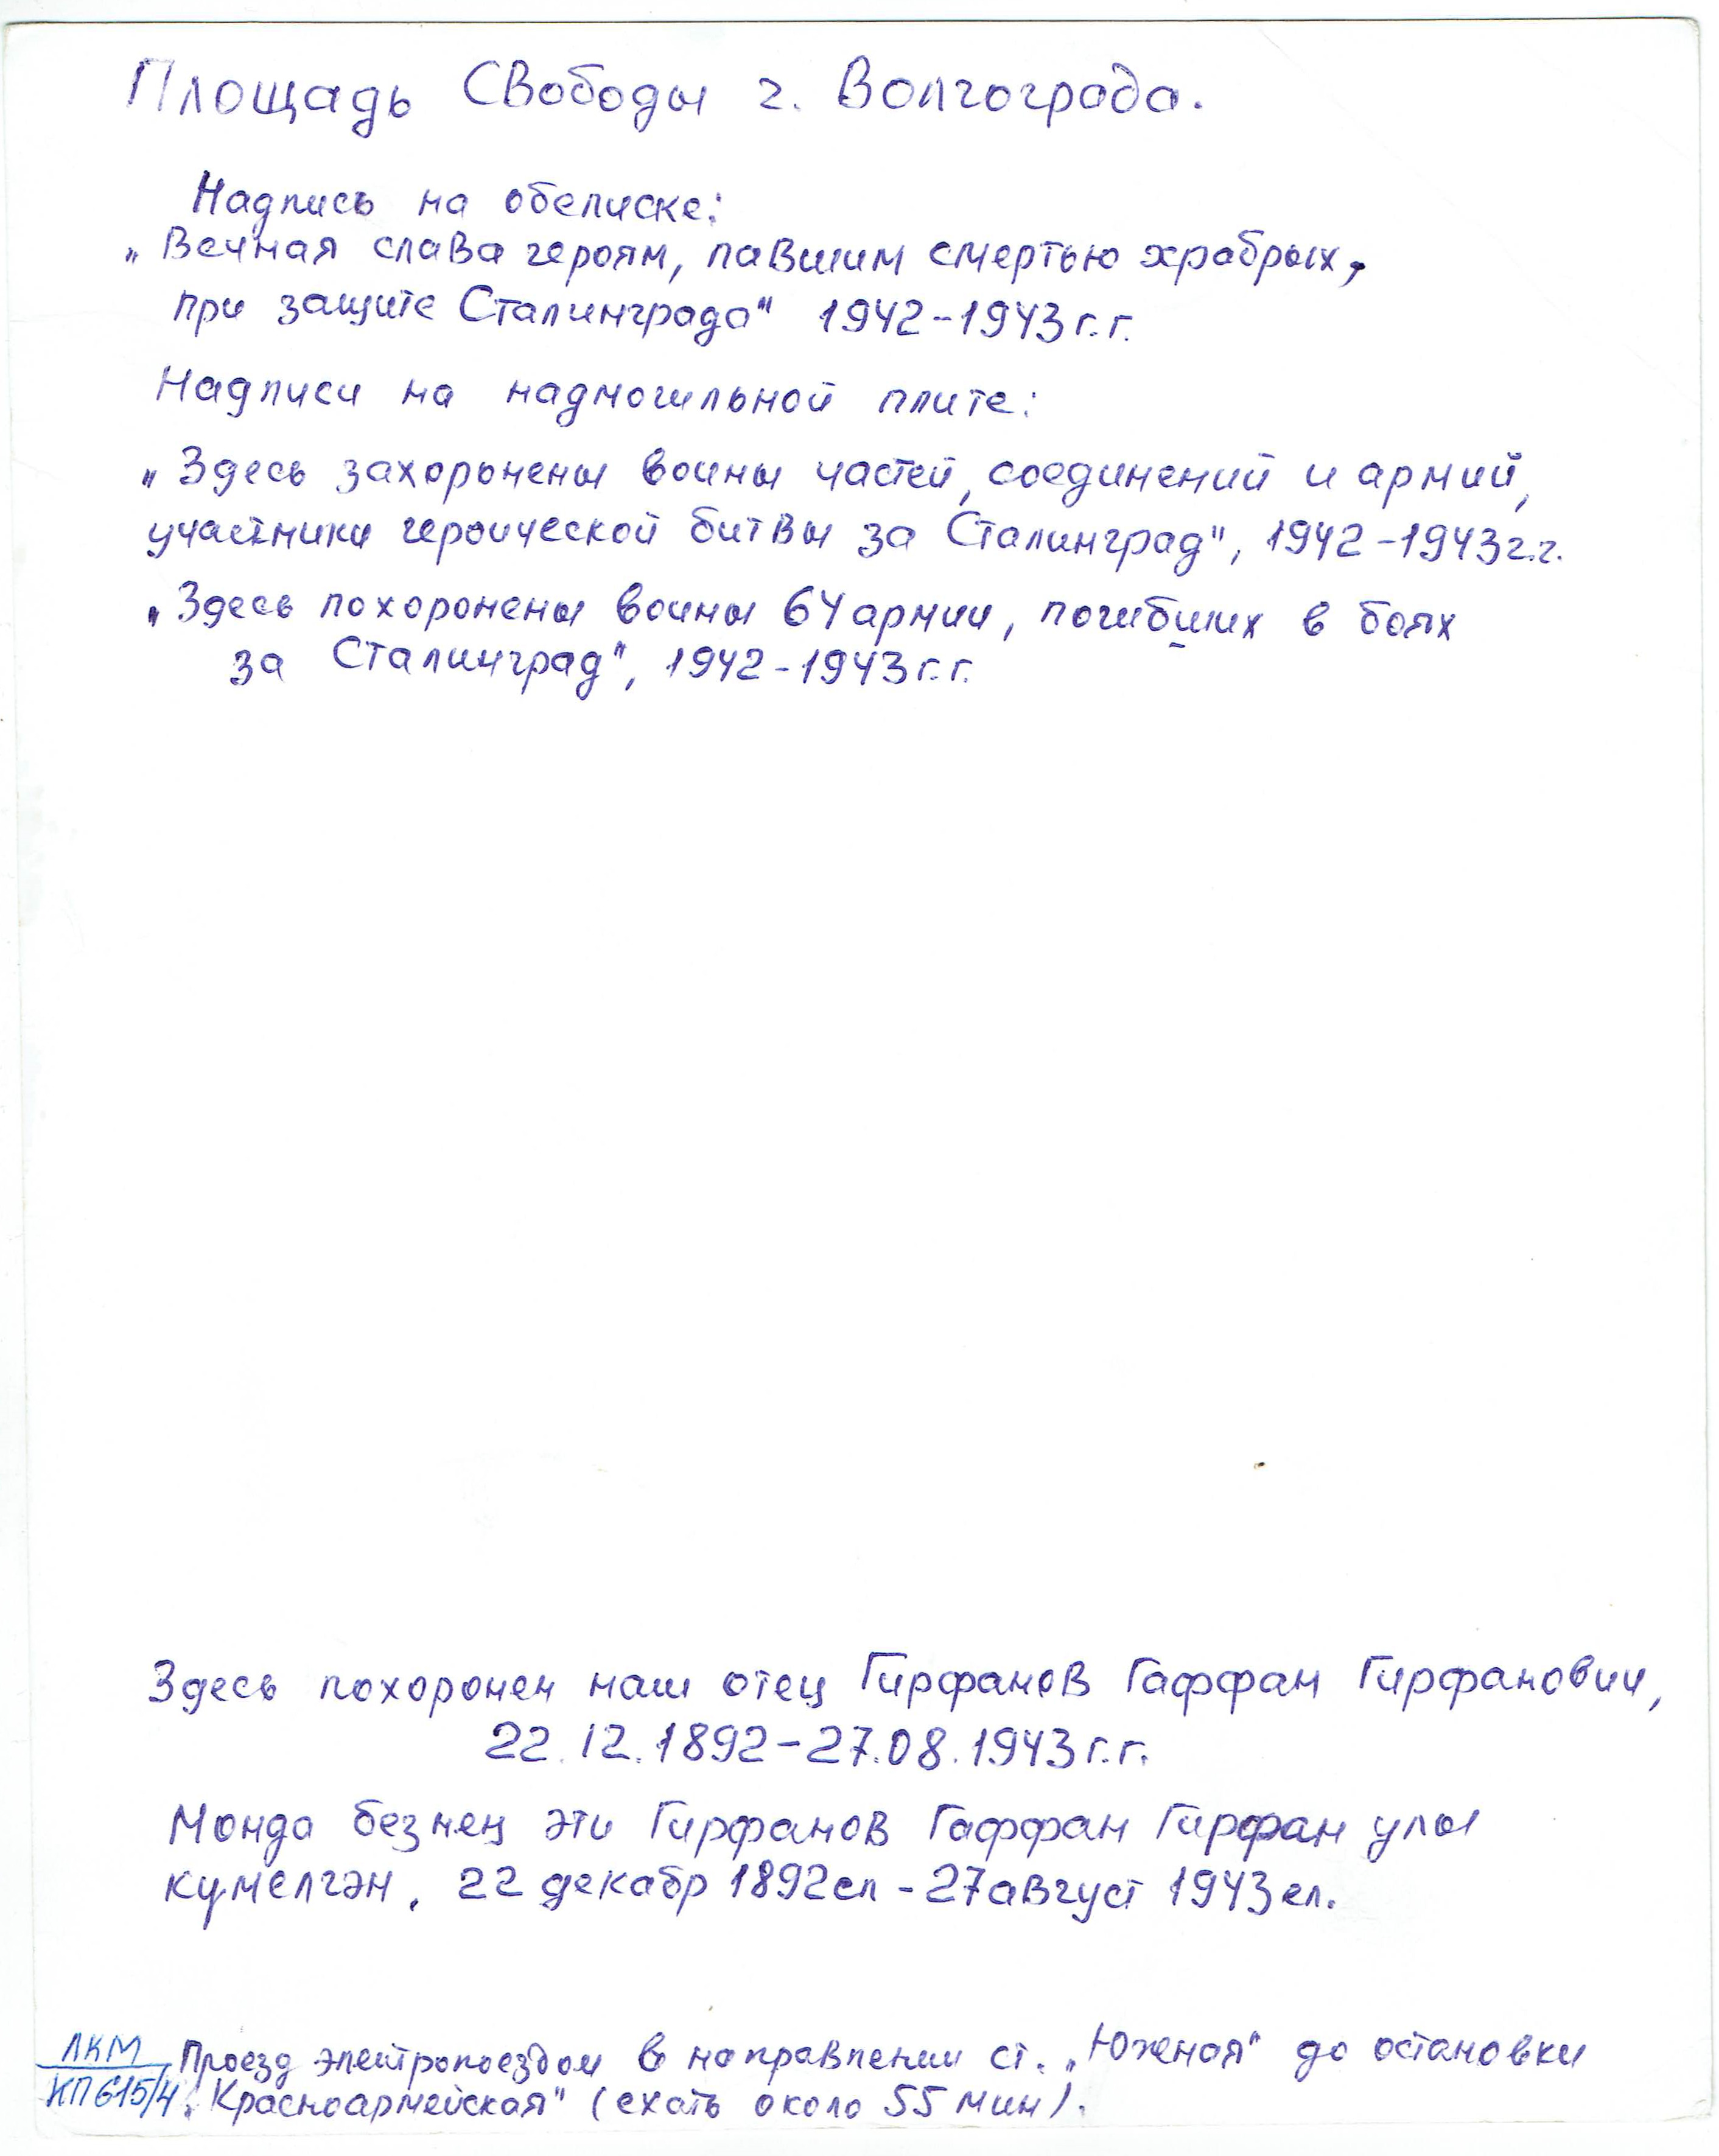 Площадь Свободы г. Волгограда.
Надпись на обелиске:
„Вечная слава героям, павшим смертью храбрых,
при защите Сталинграда" 1942-1943 г.г.
Надписи на надмогильной плите:
„Здесь захоронены воины частей, соединений и армий,
участники героической битвы за Сталинград", 1942-1943 г.г.
„Здесь похоронены воины 64 армии, погибших в боях
за Сталинград", 1942-1943 г.г.
Здесь похоронен наш отец Гирфанов Гаффан Гирфанович,
22.12.1892-27.08.1943 г.г.
Монда безнең эти Гирфанов Гаффан Гирфан улы
күмелгән. 22 декабр 1892 ел - 27 август 1943 ел.
ЛКМ
КП 615/4
Проезд электропоездом в направлении ст. „Южная" до остановки
„Красноармейская" (ехать около 55 мин).